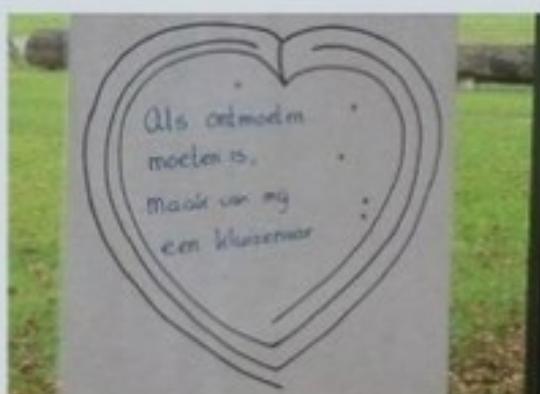 Als ontmoeten
moeten is,
maak van mij
een kluizenaar